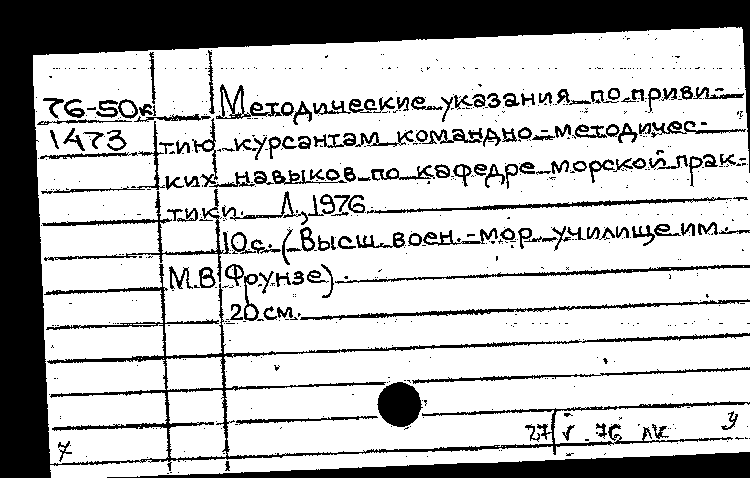 76-50к Методические указания по приви-
1473 тию курсантам командно-методичес-
ких навыков по кафедре морской прак-
тики. Л., 1976.
10с. (Высш. воен.-мор. училище им.
М.В. Фрунзе).
20 см.
27 V 76 лк У